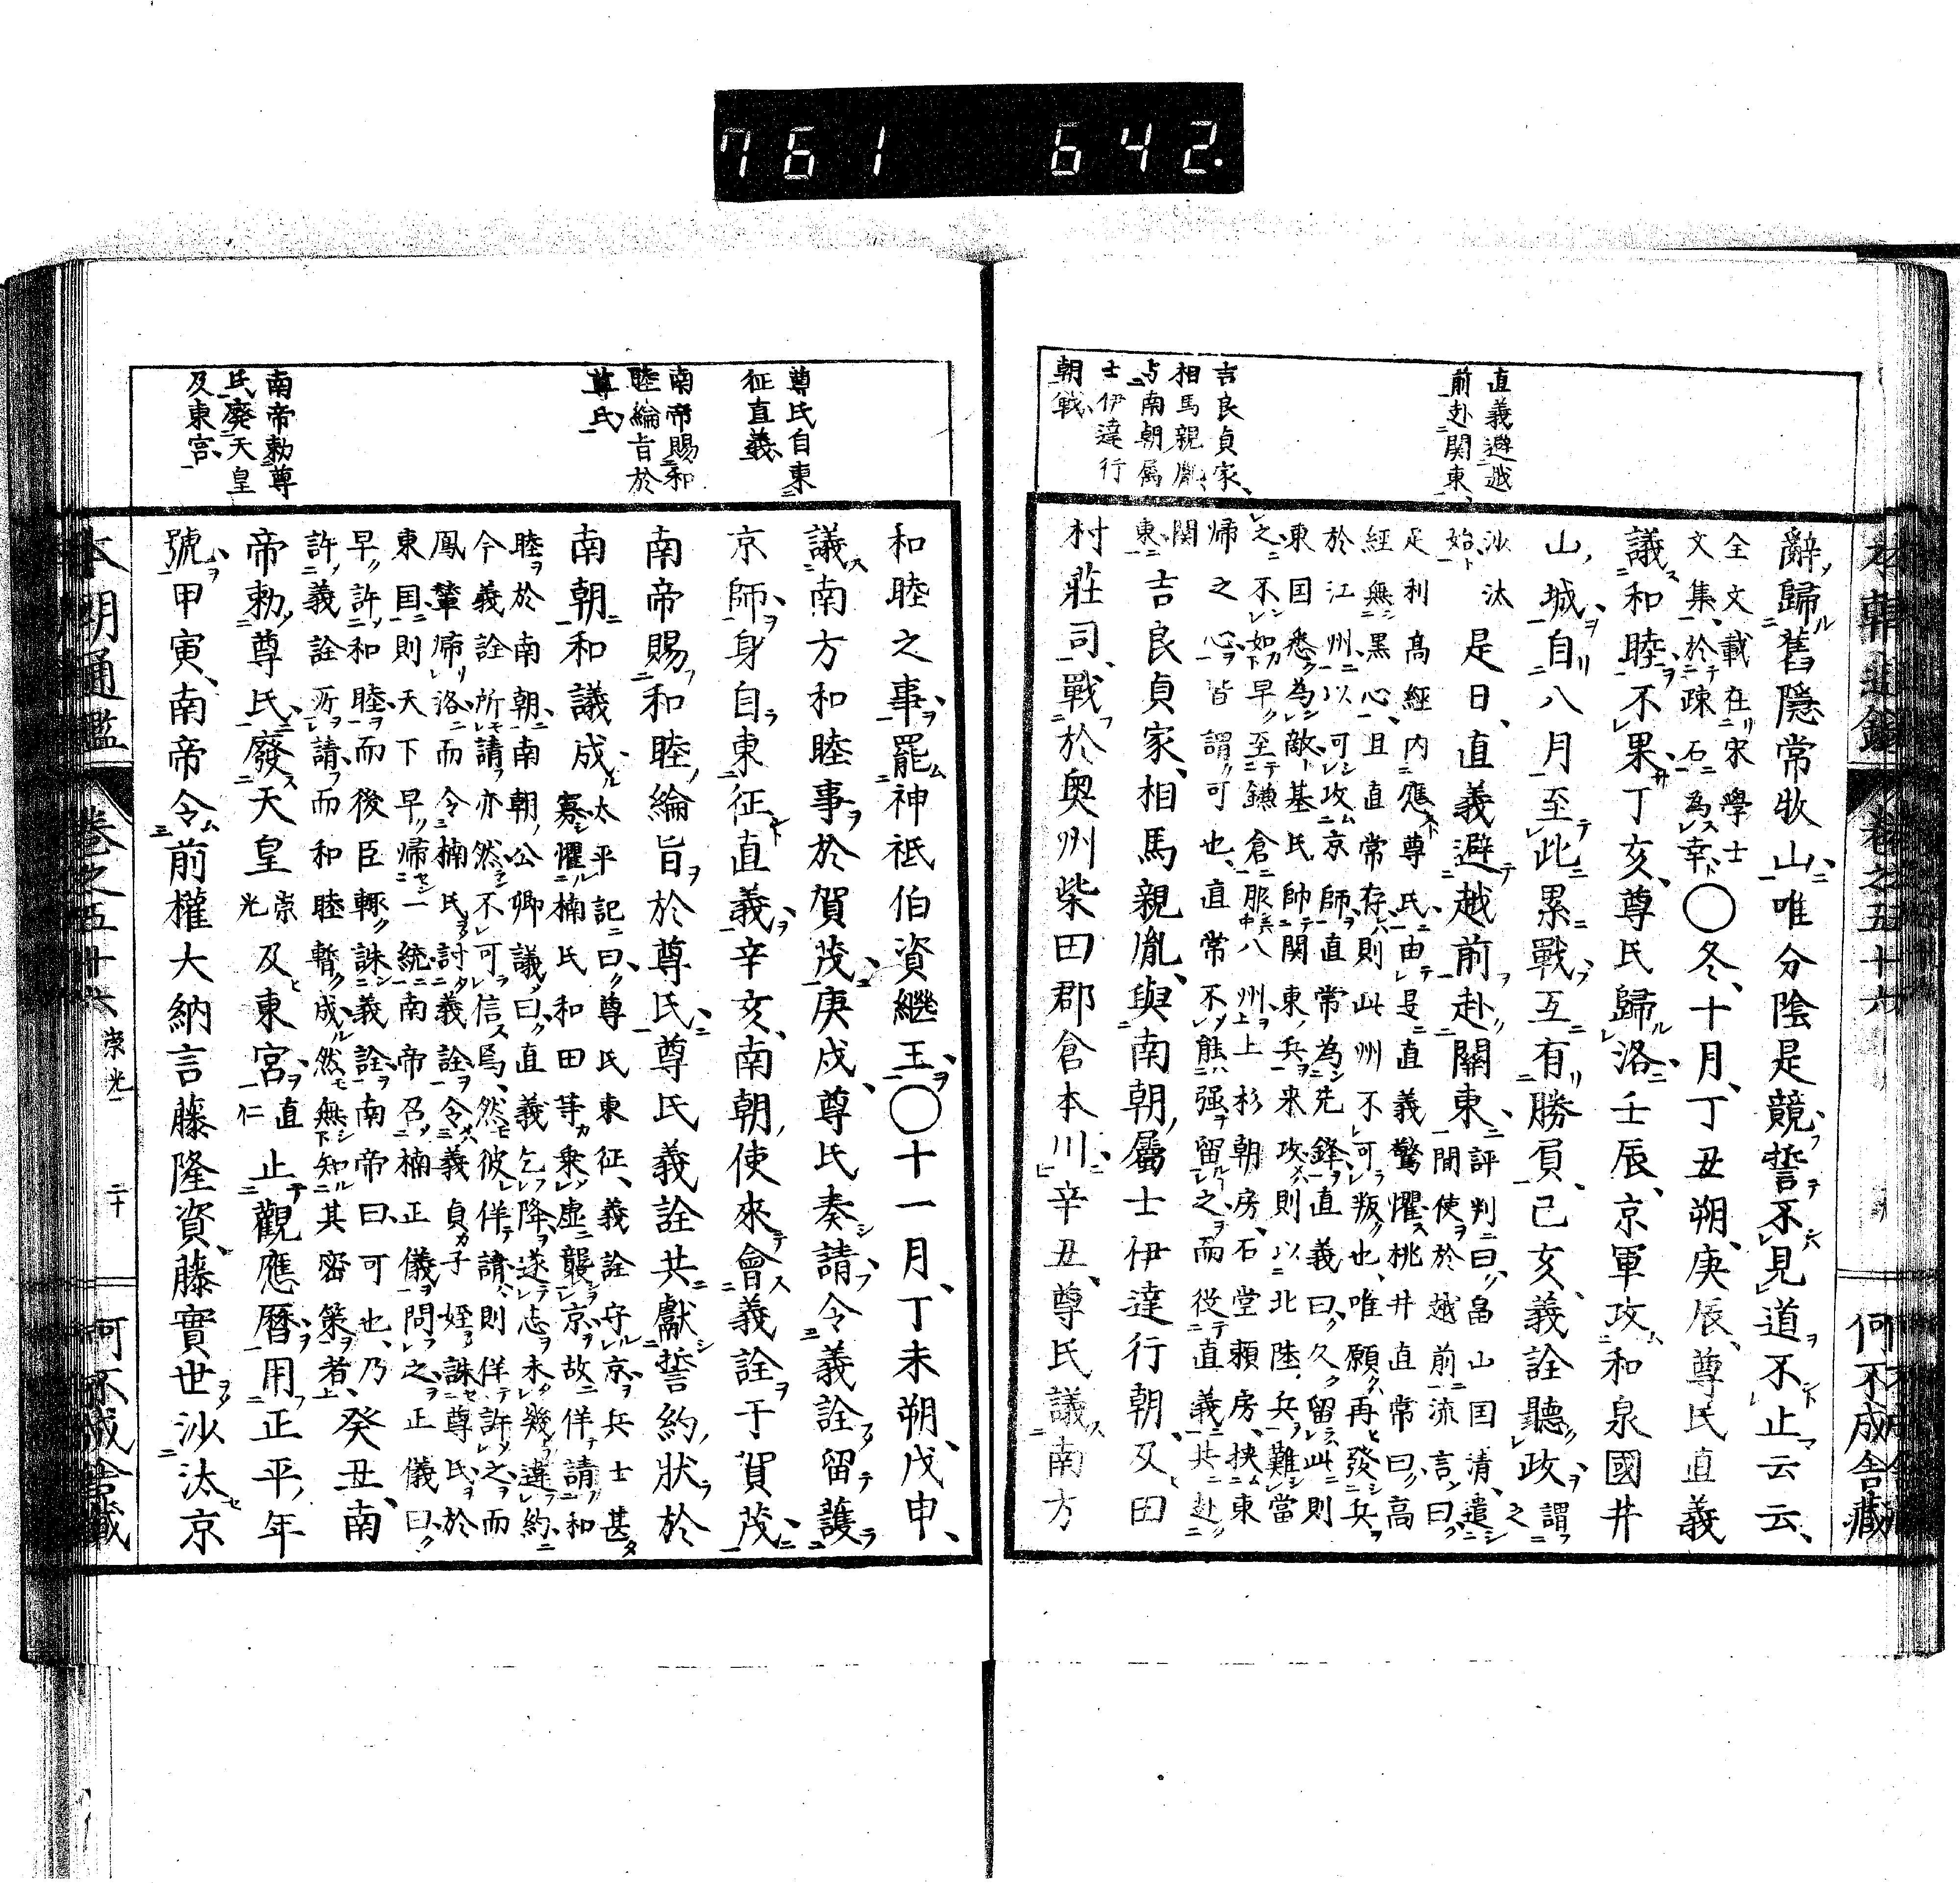 761 642.
直義避越
前赴関東
吉良貞家
相馬親胤
与南朝属
士伊達行
朝戰
辭歸舊隱常牧山唯分陰是競誓不見道不止云云
全文載在宋學士
文集於疎石為幸
○冬十月丁丑朔庚辰尊氏直義
議和睦不果丁亥尊氏歸洛壬辰京軍攻和泉國井
山城自八月至此累戰互有勝負己亥義詮聽政
謂之
沙汰
始
是日直義避越前赴關東
評判曰畠山国清遣
間使於越前流言曰
足利高經内應尊氏由是直義驚懼桃井直常曰高
經無黒心且直常存則此州不可叛也唯願再發兵
於江州以可攻京師直常為先鋒直義曰久留此則
東国悉為敵基氏帥関東兵来攻則以北陸兵難當
之不如早至鎌倉服八州上上杉朝房石堂頼房挾東
帰之心皆謂可也直常不能强留之而從直義共赴
関
東
吉良貞家相馬親胤與南朝屬士伊達行朝及田
村莊司戰於奥州柴田郡倉本川辛丑尊氏議南方
何不成舍藏
尊氏自東
征直義
南帝賜和
睦綸旨於
尊氏
南帝勅尊
氏廢天皇
及東宮
和睦之事罷神祇伯資繼王○十一月丁未朔戊申
議南方和睦事於賀茂庚戌尊氏奏請令義詮留護
京師身自東征直義辛亥南朝使來會義詮于賀茂
南帝賜和睦綸旨於尊氏尊氏義詮共獻誓約狀於
南朝和議成
太平記曰尊氏東征義詮守京兵士甚
寡懼楠氏和田等乗虚襲京故佯請和
睦於南朝南朝公卿議曰直義乞降遂志未幾違約
今義詮所請亦然不可信焉然彼佯請則佯許之而
鳳輦帰洛而令楠氏討義詮令義貞子姪誅尊氏於
東国則天下早帰一統南帝召楠正儀問之正儀曰
早許和睦而後臣輙誅義詮南帝曰可也乃
許義詮所請而和睦暫成然無知其密策者
癸丑南
帝勅尊氏廢天皇
崇
光
及東宮
直
仁
止觀應暦用正平年
號甲寅南帝令前權大納言藤隆資藤實世沙汰京
本朝通鑑 卷之五十六 崇光 二十 何不成舍藏